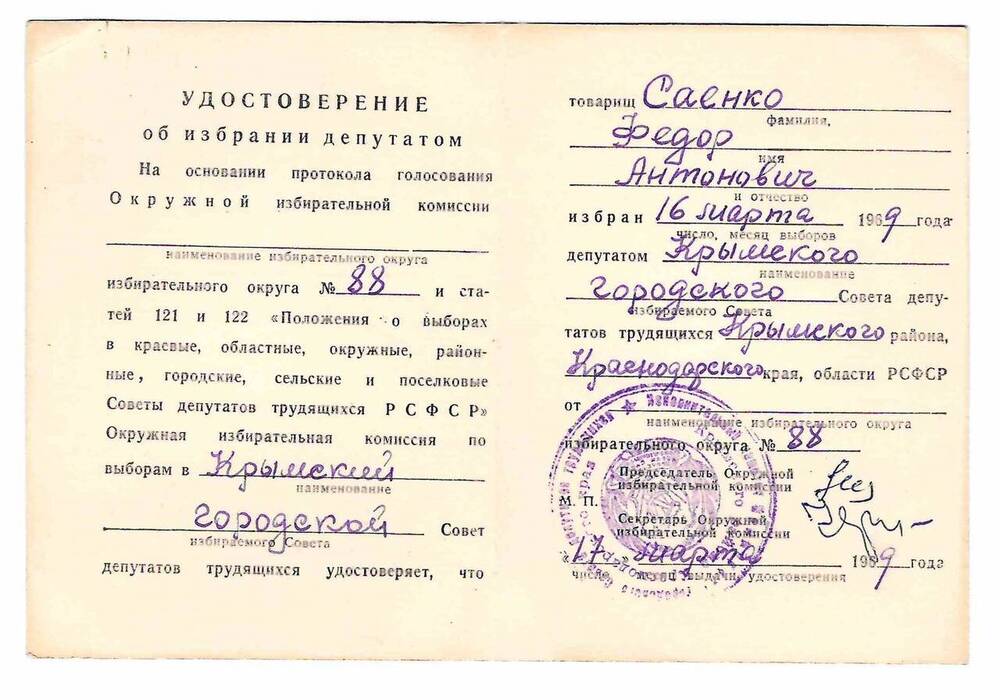 УДОСТОВЕРЕНИЕ
об избрании депутатом
На основании протокола голосования
Окружной избирательной комиссии
наименование избирательного округа
избирательного округа № 88 и ста-
тей 121 и 122 «Положения о выборах
в краевые, областные, окружные, район-
ные, городские, сельские и поселковые
Советы депутатов трудящихся РСФСР»
Окружная избирательная комиссия по
выборам в Крымский
наименование
городской Совет
избираемого Совета
депутатов трудящихся удостоверяет, что
товарищ Саенко
фамилия,
Федор
имя
Антонович
и отчество
избран 16 марта 1969 года
число, месяц выборов
депутатом Крымского
наименование
городского Совета депу-
избираемого Совета
татов трудящихся Крымского района,
Краснодарского края, области РСФСР
от
наименование избирательного округа
избирательного округа № 88
Председатель Окружной
избирательной комиссии
М. П.
Секретарь Окружной
избирательной комиссии
17 марта 1969 года
число, месяц выдачи удостоверения